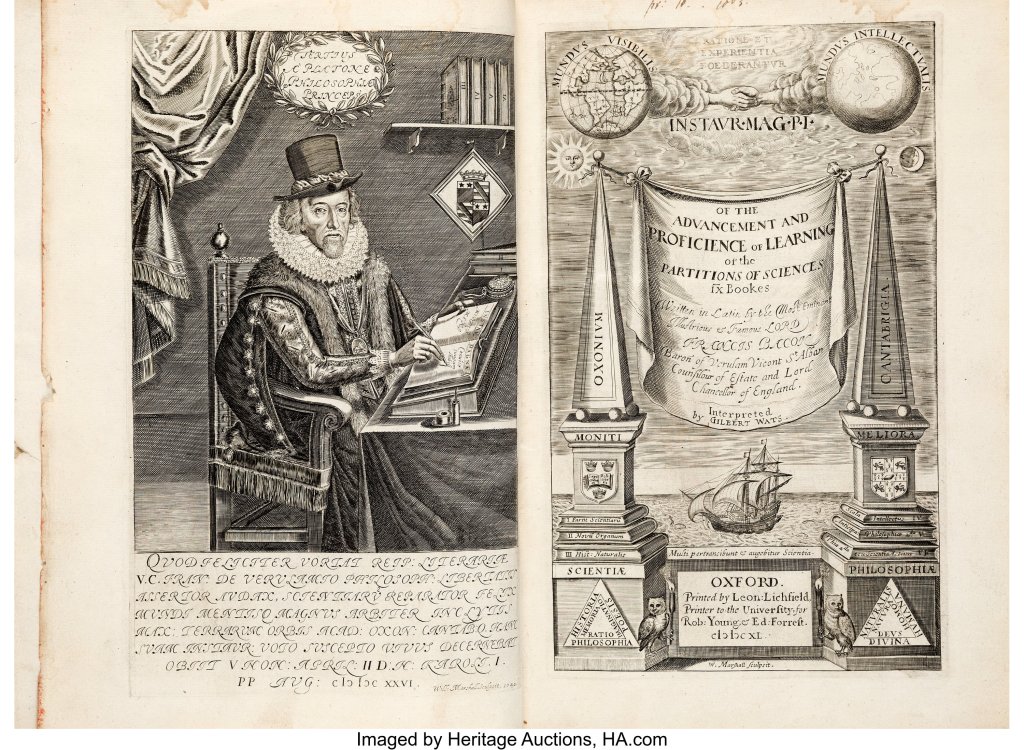 TERTIUS
A PLATONE
PHILOSOPHIÆ
PRINCEPS
QUOD FELICITER VORTAT REIP. LITERARIÆ
V.C. FRAN: DE VERULAMIO PHILOSOPH: LIBERTATIS
ASSERTOR AUDAX, SCIENTIARŪ REPARATOR FELIX
MUNDI MENTISQ MAGNUS ARBITER INCLYTIS
MAX: TERRARUM ORBIS ACAD: OXON: CANTABQ HANC
SUAM INSTAUR. VOTO SUSCEPTO VIVUS DECERNEBAT
OBIIT V NON: APRIL: II D.N: KAROLI. I.
PP AUG: cIɔ Iɔc XXVI.
Will. Marshall sculpsit.
MUNDVS VISIBILIS
RATIONE ET
EXPERIENTIA
FOEDERANTVR
MUNDVS INTELLECTVALIS
INSTAVR·MAG·P·I·
OF THE
ADVANCEMENT AND
PROFICIENCE of LEARNING
or the
PARTITIONS OF SCIENCES
IX Bookes
Written in Latin by the Most Eminent
Illustrious & Famous LORD
FRANCIS BACON
Baron of Verulam Vicont St Alban
Counsilour of Estate and Lord
Chancellor of England.
Interpreted
by GILBERT WATS.
OXONIUM
CANTABRIGIA
MONITI
MELIORA
I Partit Scientiarū
II Novū Organum
III Hist: Naturalis
Multi pertransibunt & augebitur Scientia
SCIENTIÆ
PHILOSOPHIÆ
HISTORIA
MEMORIA
POESIS
RATIO
PHILOSOPHIA
NATURALIS
DEVS
DIVINA
OXFORD.
Printed by Leon: Lichfield,
Printer to the University, for
Rob: Young, & Ed: Forrest.
cIɔ Iɔc XL.
W. Marshall sculpsit.
Imaged by Heritage Auctions, HA.com